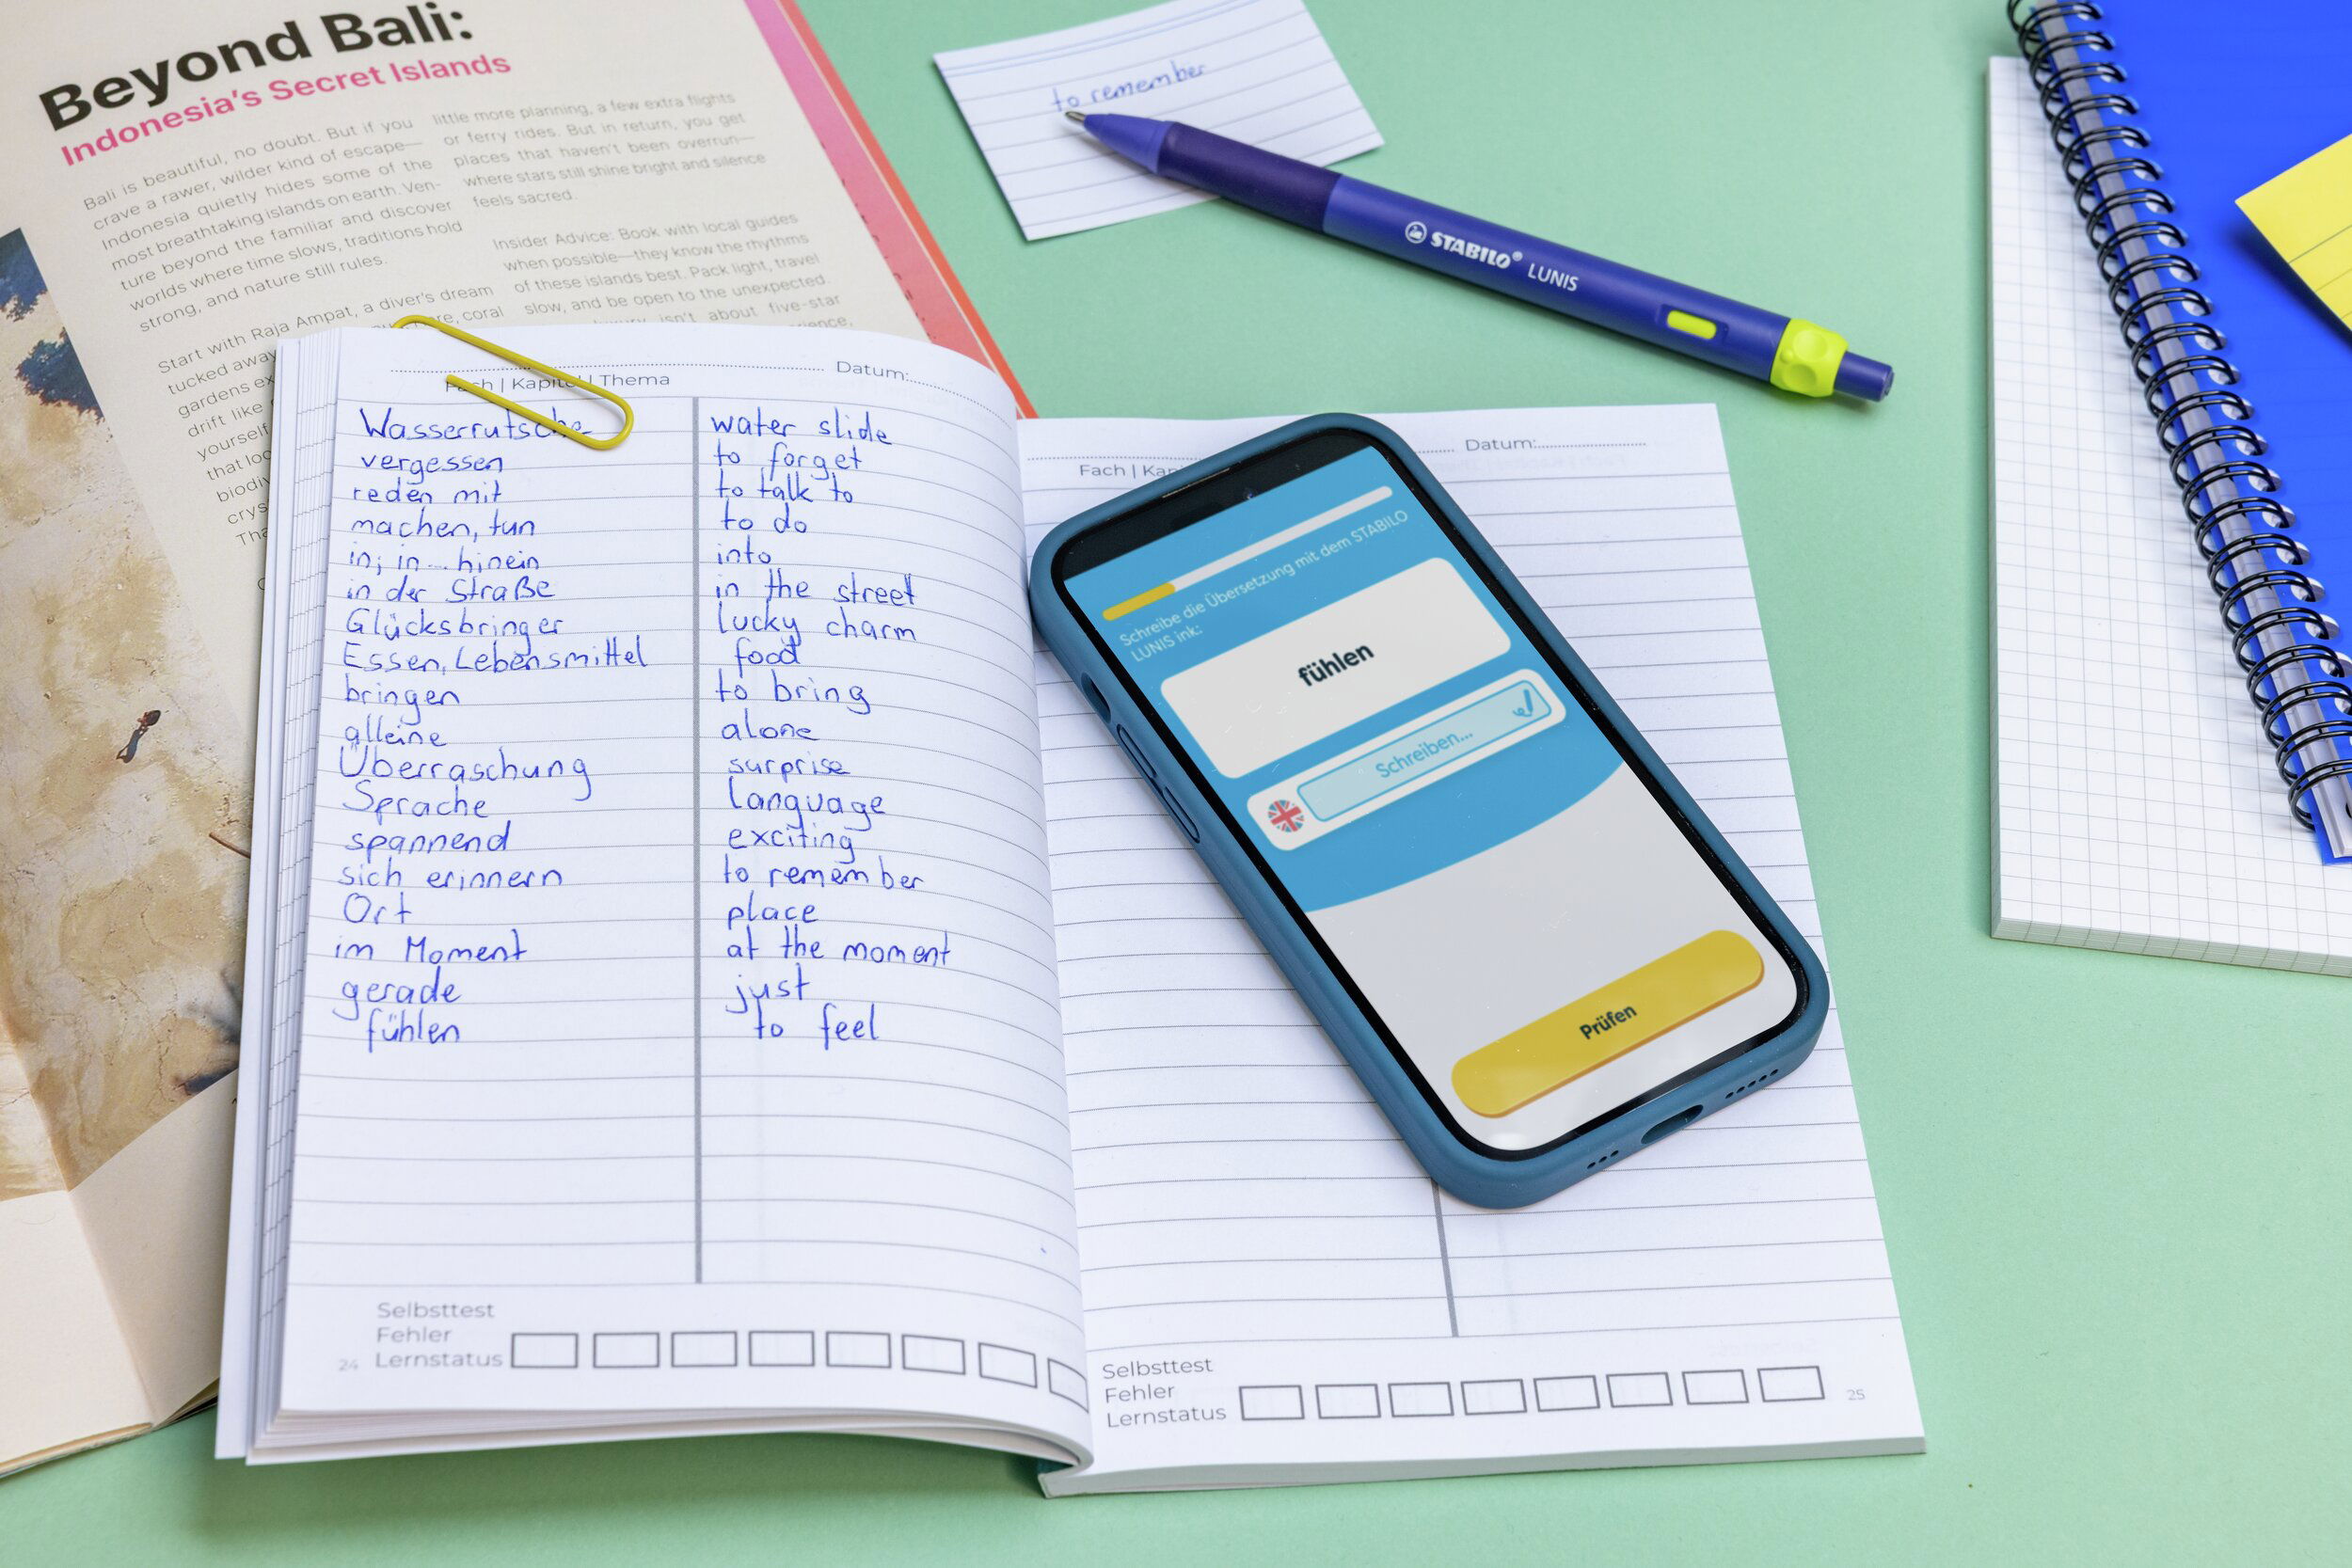 Beyond Bali:
Indonesia's Secret Islands
Bali is beautiful, no doubt. But if you
crave a rawer, wilder kind of escape—
Indonesia quietly hides some of the
most breathtaking islands on earth. Ven-
ture beyond the familiar and discover
worlds where time slows, traditions hold
strong, and nature still rules.
Start with Raja Ampat, a diver's dream
tucked away
coral
gardens
drift like
yourself
that
little more planning, a few extra flights
or ferry rides. But in return, you get
places that haven't been overrun—
where stars still shine bright and silence
feels sacred.
Insider Advice: Book with local guides
when possible—they know the rhythms
of these islands best. Pack light, travel
slow, and be open to the unexpected.
isn't about five-star
to remember
STABILO® LUNIS
Fach | Kapitel | Thema
Datum:
Wasserrutsche water slide
vergessen to forget
reden mit to talk to
machen, tun to do
in; in ... hinein into
in der Straße in the street
Glücksbringer lucky charm
Essen, Lebensmittel food
bringen to bring
alleine alone
Überraschung surprise
Sprache language
spannend exciting
sich erinnern to remember
Ort place
im Moment at the moment
gerade just
fühlen to feel
Selbsttest
Fehler
Lernstatus
24
Fach | Kap
Datum:
Schreibe die Übersetzung mit dem STABILO
LUNIS ink:
fühlen
Schreiben...
Prüfen
Selbsttest
Fehler
Lernstatus
25